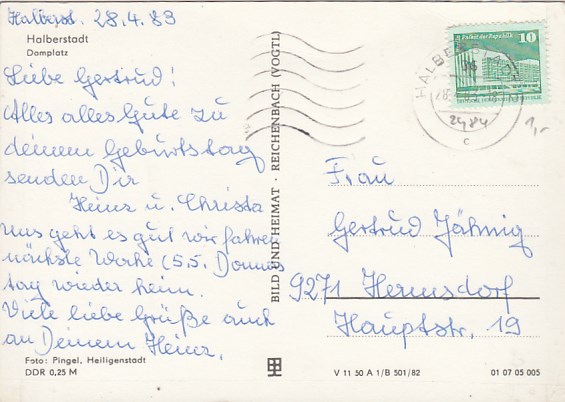 Halberst. 28.4.83
Halberstadt
Domplatz
Liebe Gertrud!
Alles alles Gute zu
deinem Geburtstag
senden Dir
Heinz u. Christa
uns geht es gut wir fahren
nächste Woche (5.5. Donners
tag wieder heim.
Viele liebe Grüße auch
an Deinem Heinz.
Foto: Pingel, Heiligenstadt
DDR 0,25 M
BILD UND HEIMAT · REICHENBACH (VOGTL)
10
HALBERSTADT
c
1,-
Frau
Gertrud Jähnig
9271 Hermsdorf
Hauptstr. 19
V 11 50 A 1/B 501/82
01 07 05 005